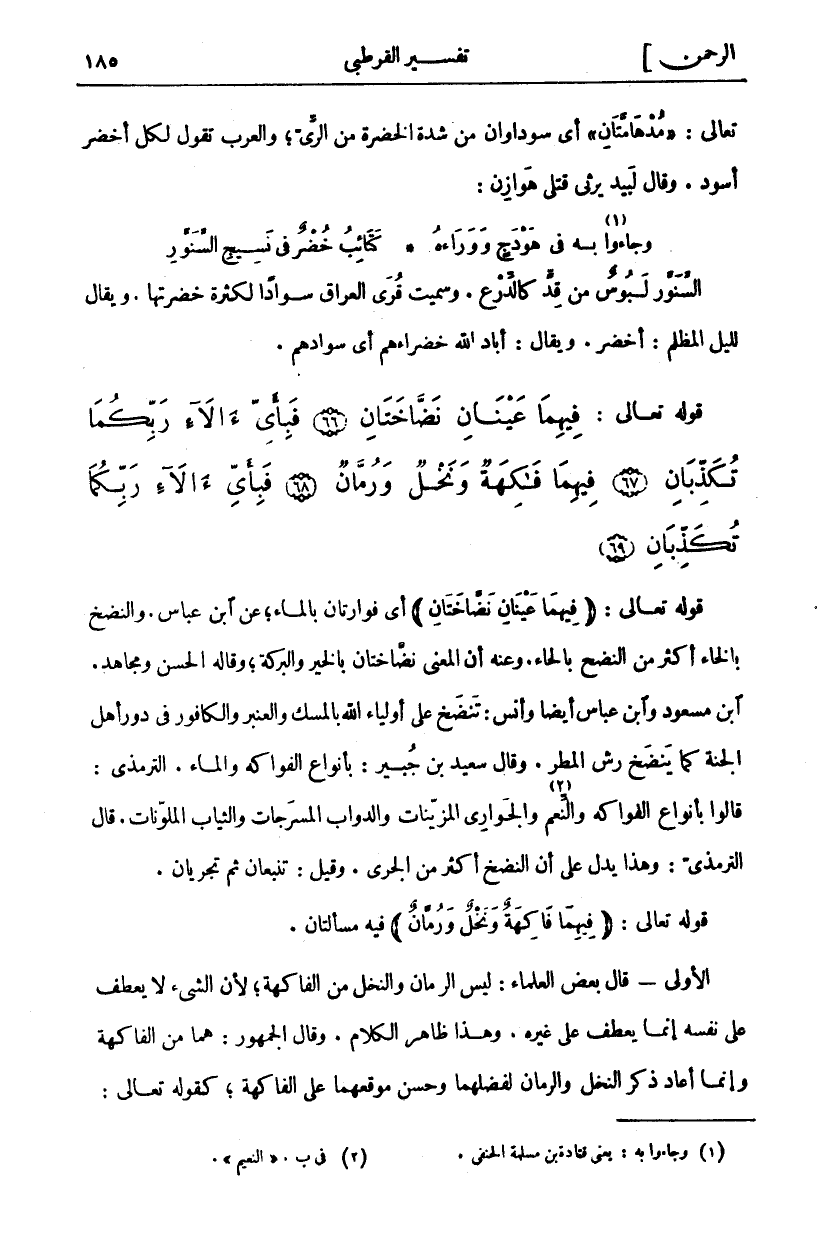 الرحمن ] تفسير القرطبى ١٨٥
تعالى : «مُدْهَامَّتَانِ» أى سوداوان من شدة الخضرة من الرىّ ؛ والعرب تقول لكل أخضر
أسود . وقال لَبِيد يرثى قتلى هَوازِن :
وجاءوا (١) به فى هَوْدَجٍ وَوَرَاءَهُ * كَتَائِبُ خُضْرٌ فى نَسِيجِ السَّنَوَّرِ
السَّنَوَّر لَبُوسٌ من قِدٍّ كالدِّرْع . وسميت قُرَى العراق سوادًا لكثرة خضرتها . ويقال
لليل المظلم : أخضر . ويقال : أباد الله خضراءهم أى سوادهم .
قوله تعالى : فِيهِمَا عَيْنَانِ نَضَّاخَتَانِ ﴿٦٦﴾ فَبِأَىِّ ءَالَآءِ رَبِّكُمَا
تُكَذِّبَانِ ﴿٦٧﴾ فِيهِمَا فَـٰكِهَةٌ وَنَخْلٌ وَرُمَّانٌ ﴿٦٨﴾ فَبِأَىِّ ءَالَآءِ رَبِّكُمَا
تُكَذِّبَانِ ﴿٦٩﴾
قوله تعالى : ﴿ فِيهِمَا عَيْنَانِ نَضَّاخَتَانِ ﴾ أى فوارتان بالماء ؛ عن ٱبن عباس . والنضخ
بالخاء أكثر من النضح بالحاء . وعنه أن المعنى نضَّاختان بالخير والبركة ؛ وقاله الحسن ومجاهد .
ٱبن مسعود وٱبن عباس أيضا وأنس : تَنضَخ على أولياء الله بالمسك والعنبر والكافور فى دور أهل
الجنة كما يَنضَخ رش المطر . وقال سعيد بن جُبير : بأنواع الفواكه والماء . الترمذى :
قالوا بأنواع الفواكه والنَّعم (٢) والجَوارى المزيّنات والدواب المسرَجات والثياب الملوّنات . قال
الترمذىّ : وهذا يدل على أن النضخ أكثر من الجرى . وقيل : تنبعان ثم تجريان .
قوله تعالى : ﴿ فِيهِمَا فَاكِهَةٌ وَنَخْلٌ وَرُمَّانٌ ﴾ فيه مسألتان .
الأولى — قال بعض العلماء : ليس الرمان والنخل من الفاكهة ؛ لأن الشىء لا يعطف
على نفسه إنما يعطف على غيره . وهذا ظاهر الكلام . وقال الجمهور : هما من الفاكهة
وإنما أعاد ذكر النخل والرمان لفضلهما وحسن موقعهما على الفاكهة ؛ كقوله تعالى :
(١) وجاءوا به : يعنى قتادة بن مسلمة الحنفى . (٢) فى ب . « النعيم » .